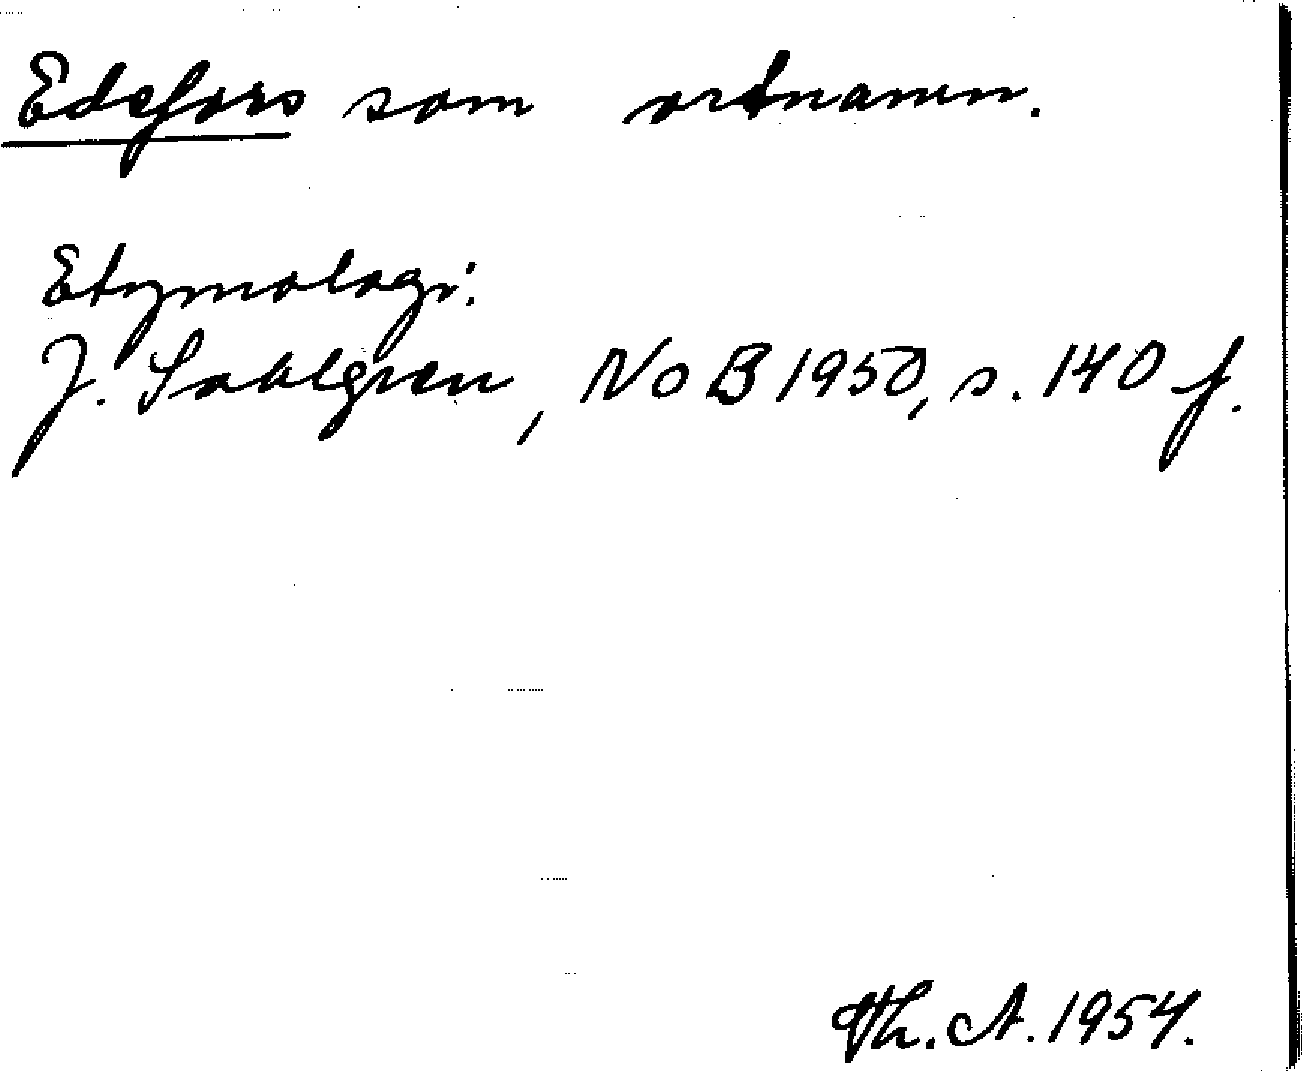 Edefors som ortnamn.
Etymologi:
J. Sahlgren, NoB 1950, s. 140 f.
Th. A. 1954.